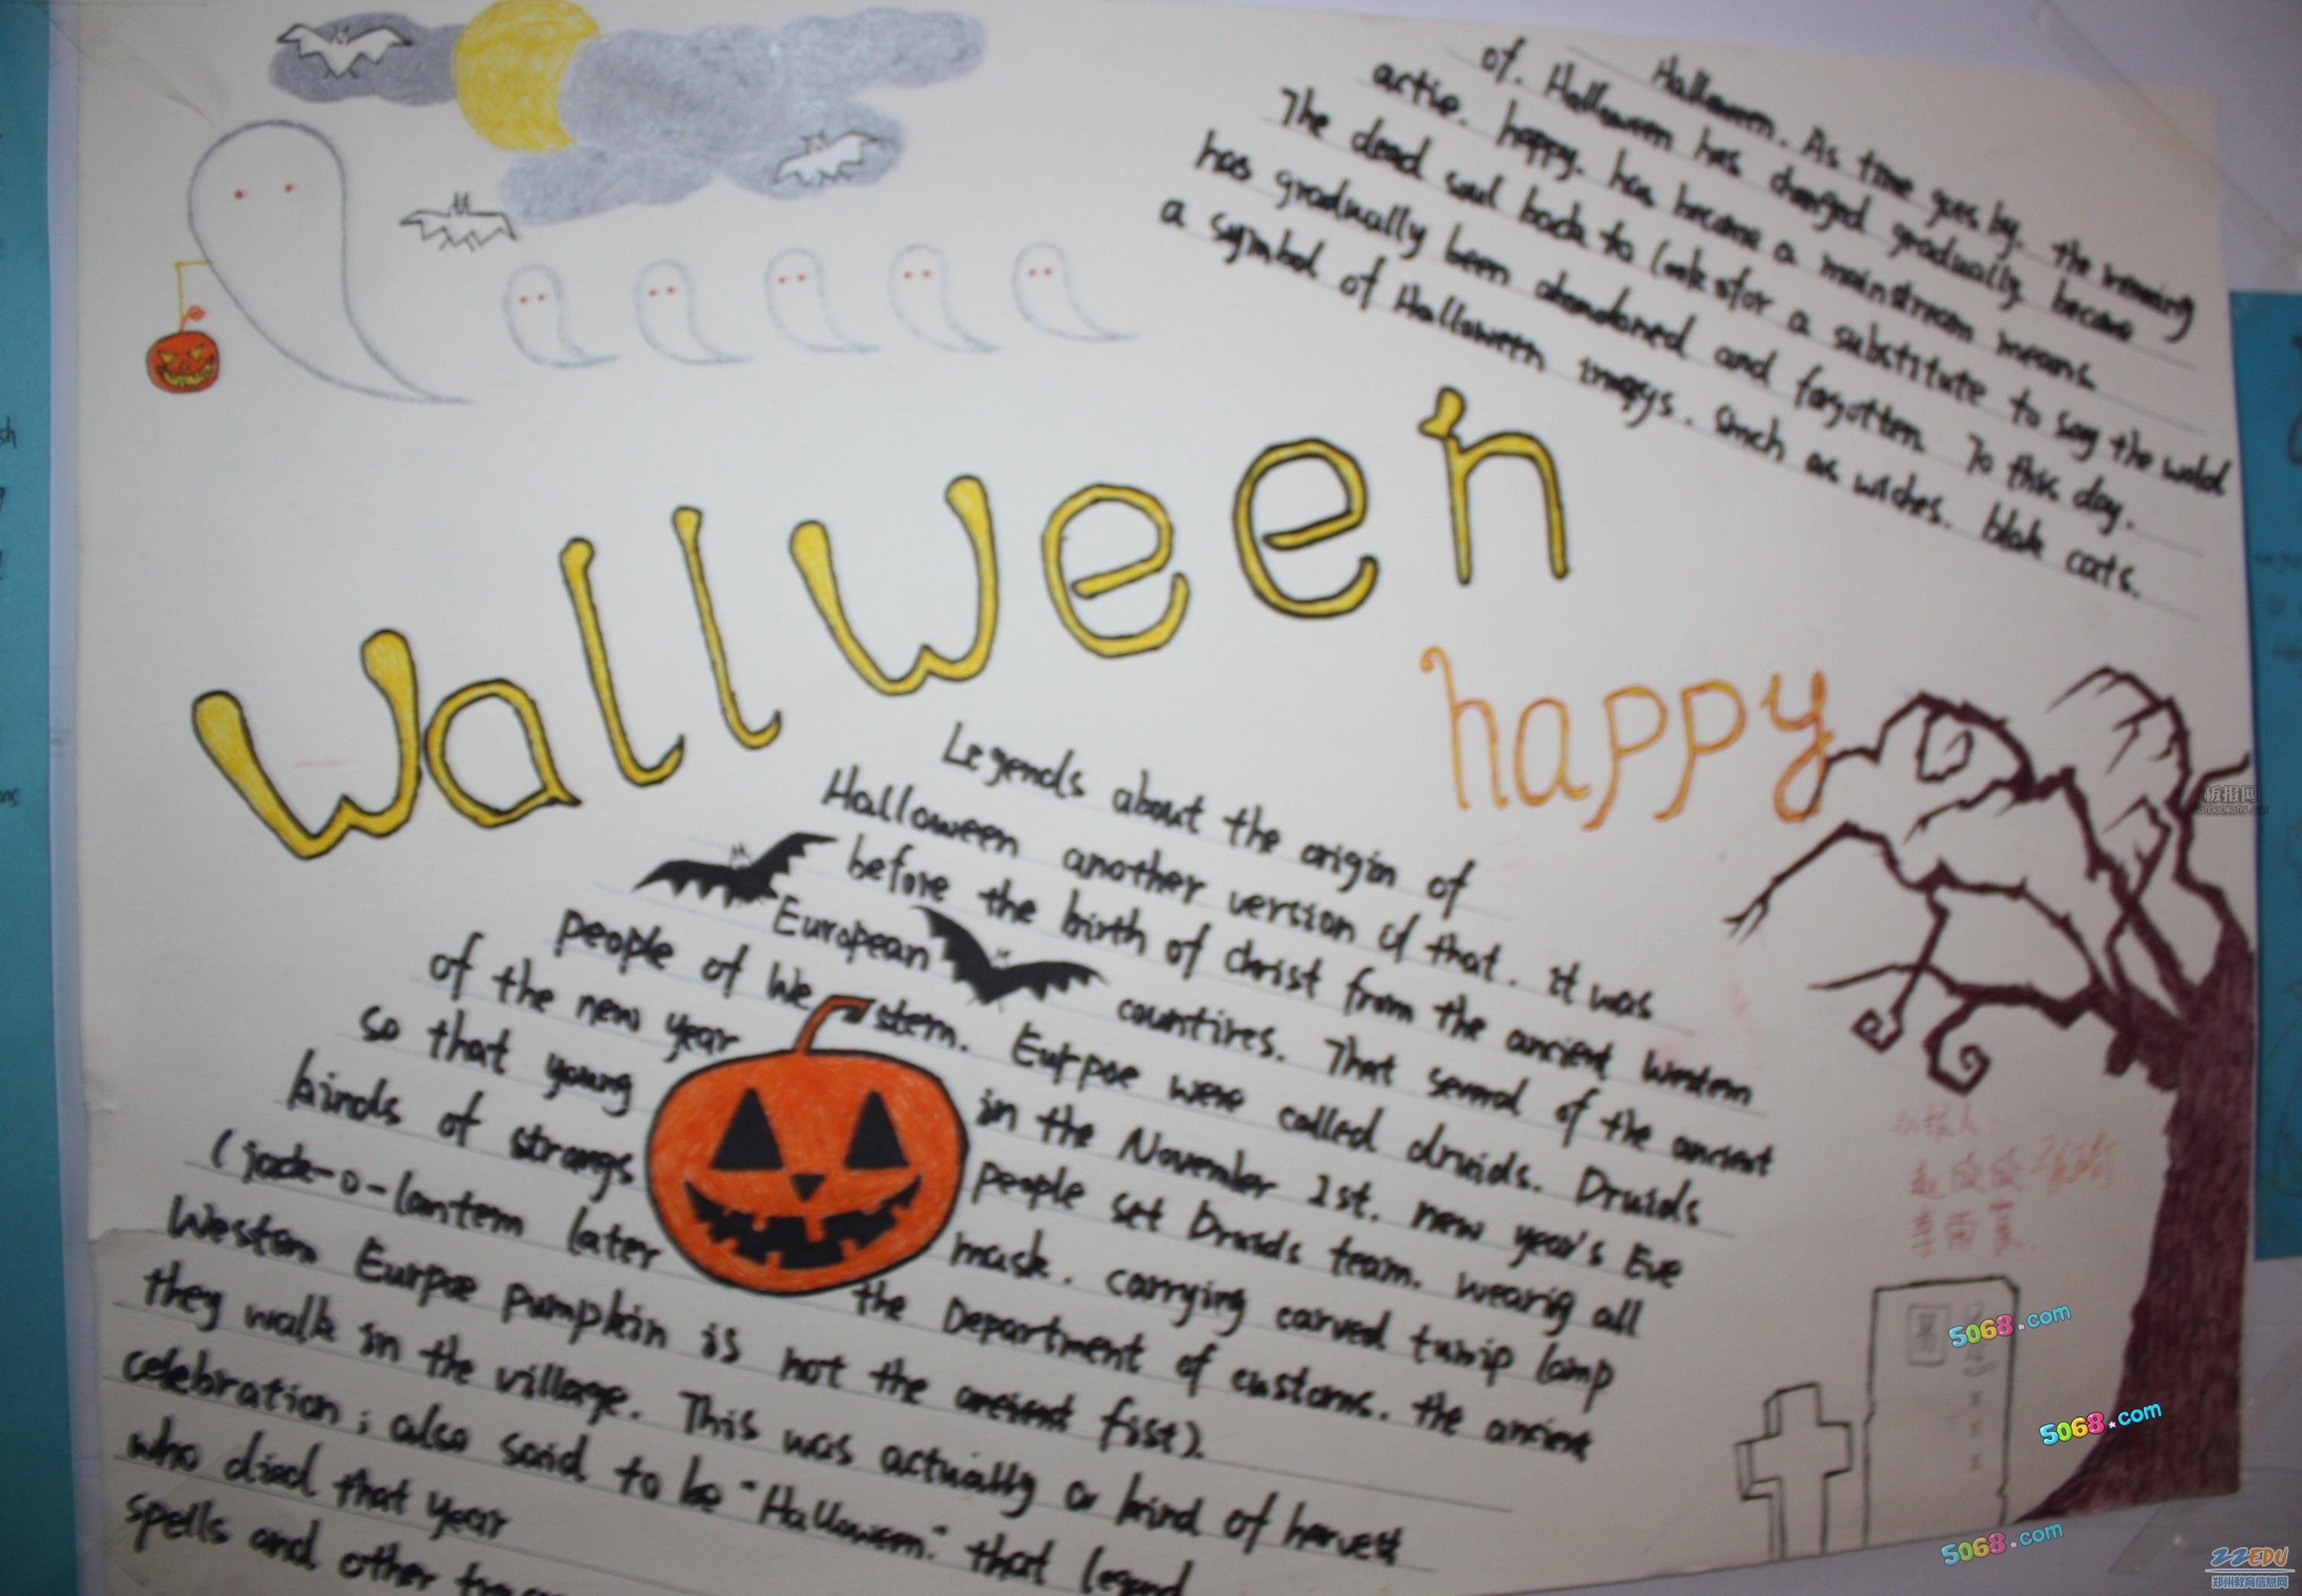 Halloween. As time goes by. the meaning
of. Halloween has changed gradually become
actie. happy. has become a mainstream means
The dead soul back to look sfor a substitute to say the wold
has gradually been abandoned and forgotten. To this day.
a symbol of Halloween imagys. Such as wiches. blak cats.
Wallween
happy
Legends about the origin of
Halloween another version of that. it was
before the birth of Christ from the ancient Western
European countires. That several of the ancient
people of Western. Eurpoe were called druids. Druids
of the new year in the November 1st. new year's Eve
so that young people set Druids team. wearig all
kinds of strangs mask. carrying carved tunip lamp
(jack-o-lantern later the Department of customs. the ancient
Western Eurpoe pumpkin is not the ancient fist).
they walk in the village. This was actually a kind of harvest
celebration; also said to be "Halloween." that legend
who died that year
spells and other
办报人
李雨
某
x
x
x
板报网
5068.com
5068.com
5068.com
ZZEDU
郑州教育信息网